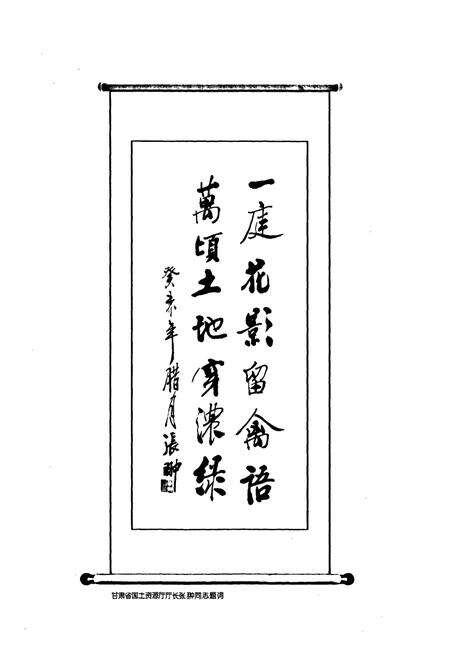 一庭花影留禽語
萬頃土地穿濃緑
癸未年腊月張翀
甘肃省国土资源厅厅长张翀同志题词